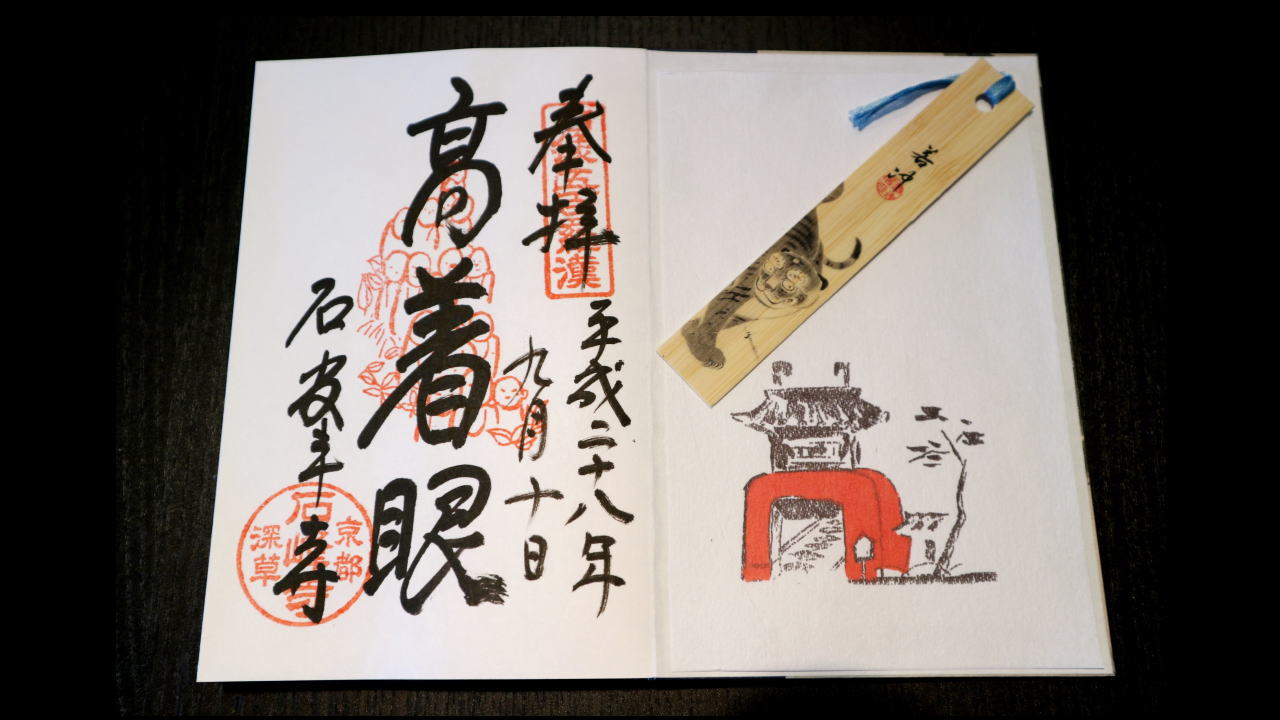 若冲
奉拝
平成二十八年
九月十日
高着眼
石峯寺
京都
石峰寺
深草